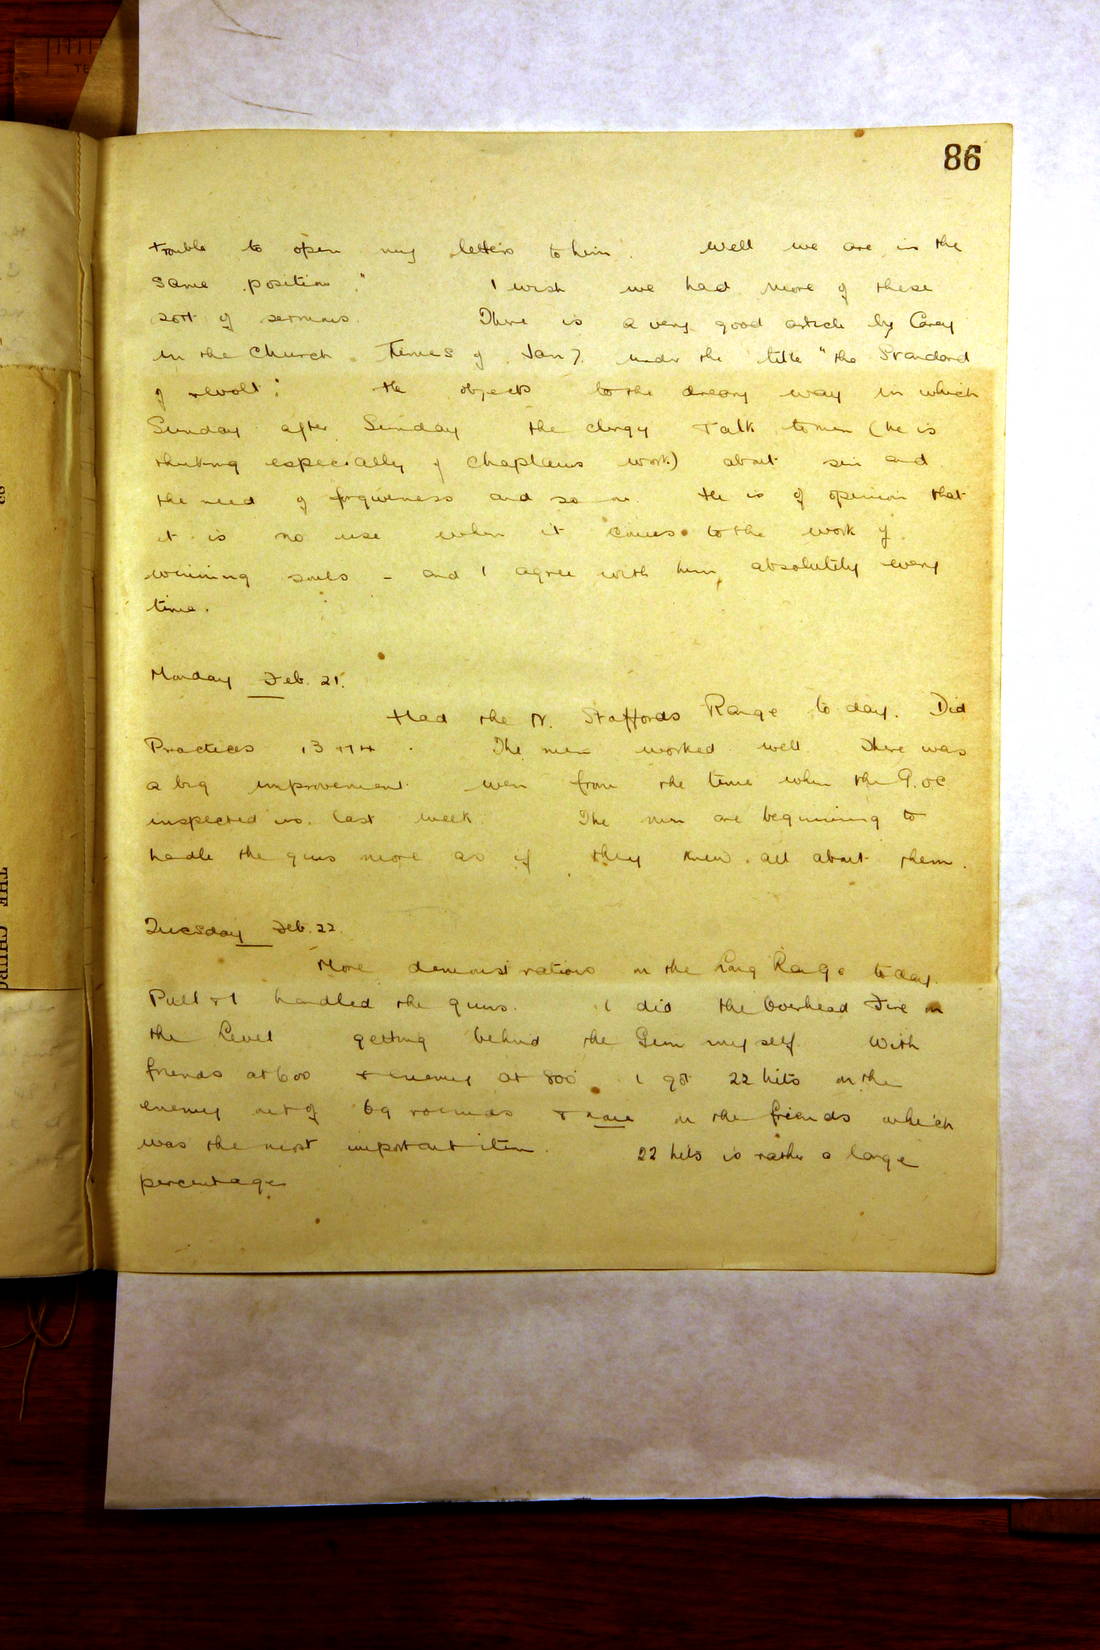 86
trouble to open my letters to him. Well we are in the
same position." I wish we had more of these
sort of sermons. There is a very good article by Carey
in the Church Times of Jan 7 under the title "the Standard
of revolt". He objects to the dreary way in which
Sunday after Sunday the clergy talk to men (he is
thinking especially of Chaplains work) about sin and
the need of forgiveness and so on. He is of opinion that
it is no use when it comes to the work of
winning souls - and I agree with him, absolutely every
time.
Monday Feb. 21.
Had the N. Staffords Range to day. Did
Practices 13 + 14. The men worked well. There was
a big improvement even from the time when the G.OC
inspected us last week. The men are beginning to
handle the guns more as if they knew all about them.
Tuesday Feb. 22.
More demonstrations on the Long Range to day.
Pull & I handled the guns. I did the Overhead Fire on
the Level getting behind the Gun myself. With
friends at 600 & enemy at 800 I got 22 hits on the
enemy out of 69 rounds & none on the friends which
was the most important item. 22 hits is rather a large
percentage
THE CHURC